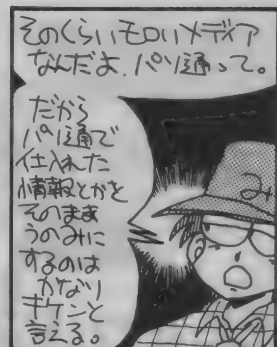 そのくらいモロいメディア
なんだよ、パソ通って。
だから
パソ通で
仕入れた
情報とかを
そのまま
うのみに
するのは
かなり
キケンと
言える。
み